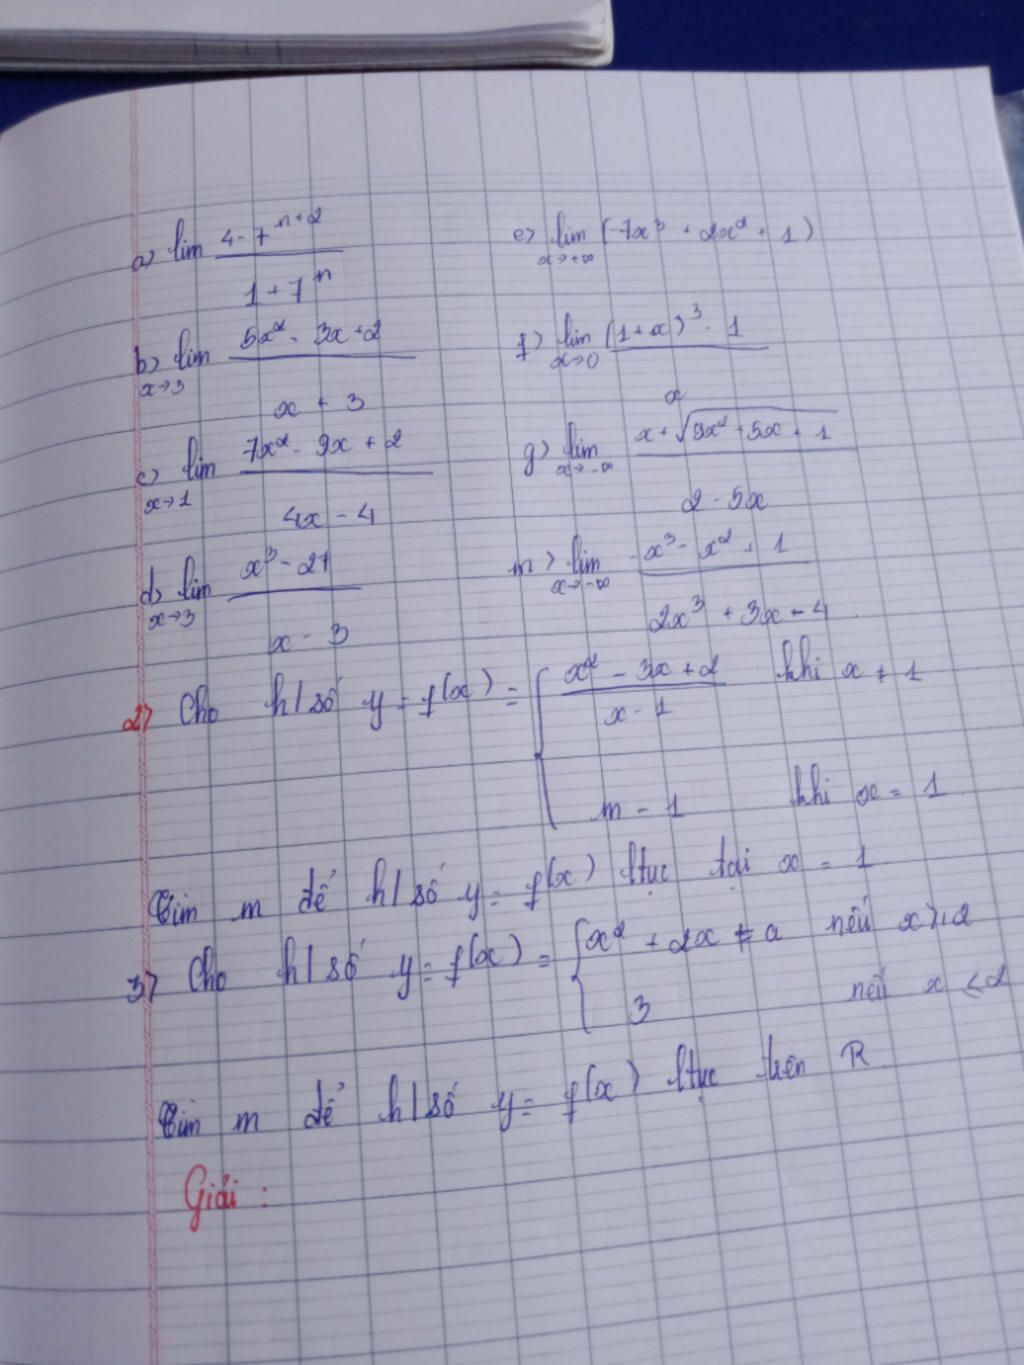 a) lim (4 - 7^(n+2)) / (1 + 7^n)
b) lim x→3 (5x² - 3x + 2) / (x + 3)
c) lim x→1 (7x² - 9x + 2) / (4x - 4)
d) lim x→3 (x³ - 27) / (x - 3)
e) lim x→+∞ (-7x³ + 2x² + 1)
f) lim x→0 ((1+x)³ - 1) / x
g) lim x→-∞ (x + √(9x² + 5x + 1)) / (2 - 5x)
m) lim x→-∞ (-x³ - x² + 1) / (2x³ + 3x - 4)
2) Cho h/số y = f(x) = { (x² - 3x + 2) / (x - 1) khi x ≠ 1
m - 1 khi x = 1
Tìm m để h/số y = f(x) ltục tại x = 1
3) Cho h/số y = f(x) = { x² + 2x + a nếu x > 2
3 nếu x ≤ 2
Tìm m để h/số y = f(x) ltục trên R
Giải :